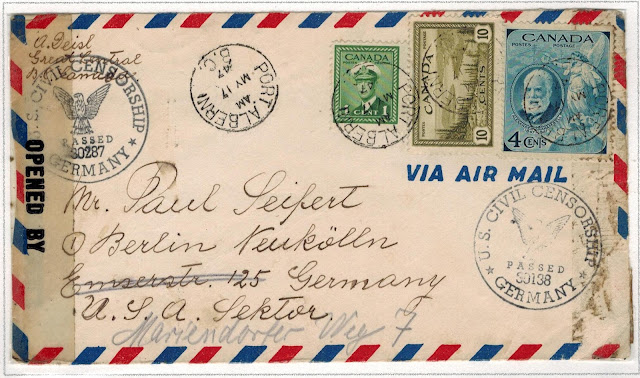 A. Deisl
Great Central
B.C. Canada
U.S. CIVIL CENSORSHIP
PASSED
30287
GERMANY
OPENED BY
PORT ALBERNI
AM
MY 17
47
B.C.
CANADA
1 CENT 1
PORT ALBERNI
CANADA
10 CENTS 10
CANADA
POSTES POSTAGE
4 CENTS
VIA AIR MAIL
Mr. Paul Seifert
① Berlin Neukölln
Emserstr. 125 Germany
U.S.A. Sektor.
Mariendorfer Weg 7
U.S. CIVIL CENSORSHIP
PASSED
30138
GERMANY